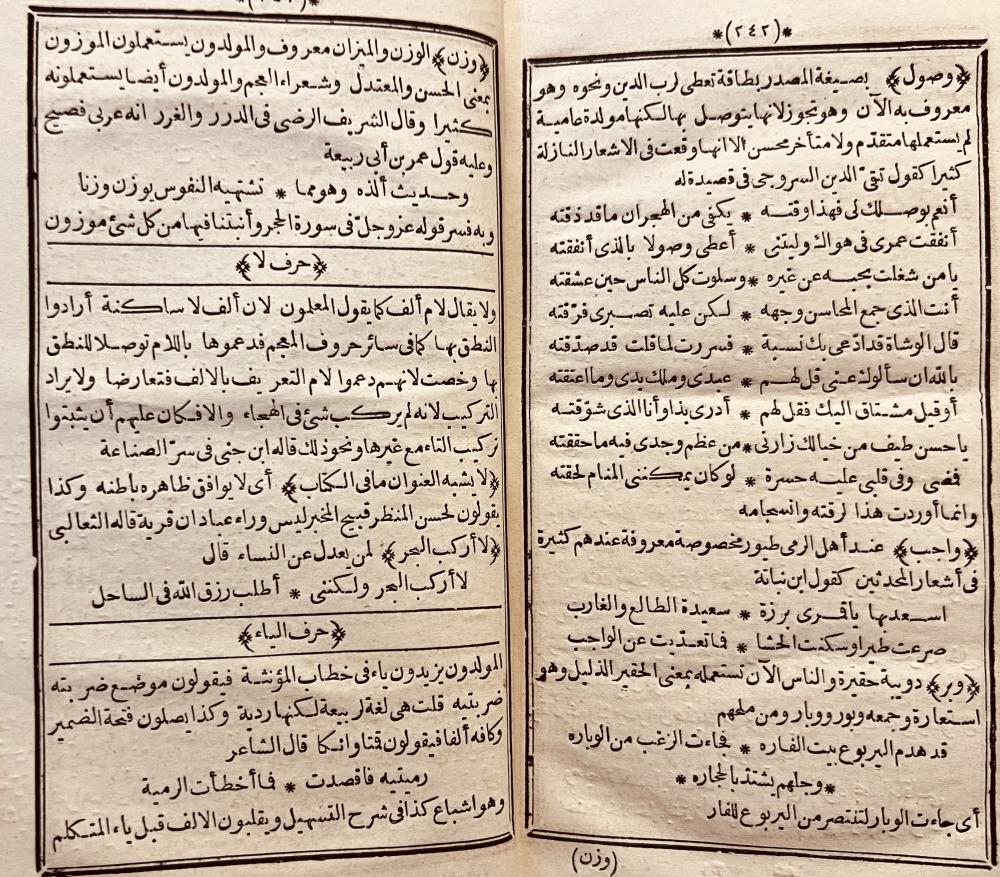 *(٢٤٢)*
﴿وصول﴾ بصيغة المصدر بطاقة تعطى لرب الدين ونحوه وهو
معروف به الآن وهو تجوز لانها يتوصل بها لكنها مولدة عامية
لم يستعملها متقدّم ولا متأخر محسن الا انها وقعت فى الاشعار النازلة
كثيرا كقول تقىّ الدين السروجى فى قصيدة له
أنعم بوصلك لى فهذا وقته * يكفى من الهجران ماقد ذقته
أنفقت عمرى فى هواك وليتنى * أعطى وصولا بالذى أنفقته
يامن شغلت بحبه عن غيره * وسلوت كل الناس حين عشقته
أنت الذى جمع المحاسن وجهه * لكن عليه تصبرى فرّقته
قال الوشاة قد ادّعى بك نسبة * فسررت لما قلت قد صدّقته
بالله ان سألوك عنى قل لهم * عبدى وملك يدى وما اعتقته
أوقيل مشتاق اليك فقل لهم * أدرى بذا وأنا الذى شوّقته
ياحسن طيف من خيالك زارنى * من عظم وجدى فيه ماحققته
فضى وفى قلبى عليه حسرة * لوكان يمكننى المنام لحقته
وانما أوردت هذا لرقته وانسجامه
﴿واجب﴾ عند أهل الرمى طيور مخصوصة معروفة عندهم كثيرة
فى أشعار المحدثين كقول ابن نباتة
اسعد بها ياقمرى برزة * سعيدة الطالع والغارب
صرعت طيرا وسكنت الحشا * فما تعدّيت عن الواجب
﴿وبر﴾ دويبة حقيرة والناس الآن تستعمله بمعنى الحقير الذليل وهو
استعارة وجمعه وبور ووبار ومن ملحهم
قد هدم اليربوع بيت الفاره * فجاءت الزغب من الوباره
*وجلهم يشتدّ بالحجاره*
أى جاءت الوبار لتنتصر من اليربوع للفار
(وزن)
﴿وزن﴾ الوزن والميزان معروف والمولدون يستعملون الموزون
بمعنى الحسن والمعتدل وشعراء العجم والمولدون أيضا يستعملونه
كثيرا وقال الشريف الرضى فى الدرر والغرر انه عربى فصيح
وعليه قول عمر بن أبى ربيعة
وحديث ألذه وهو مما * تشتهيه النفوس يوزن وزنا
وبه فسر قوله عز وجلّ فى سورة الحجر وأنبتنا فيها من كل شئ موزون
﴿حرف لا﴾
ولا يقال لام ألف كما يقول المعلمون لان ألف لا ساكنة أرادوا
النطق بها كما فى سائر حروف المعجم فدعموها باللام توصلا للنطق
بها وخصت لانهم دعموا لام التعريف بالالف فتعارضا ولا يراد
التركيب لانه لم يركب شئ فى الهجاء والا فكان عليهم أن يثبتوا
تركيب التاء مع غيرها ونحو ذلك قاله ابن جنى فى سرّ الصناعة
﴿لا يشبه العنوان ما فى الكتاب﴾ أى لا يوافق ظاهره باطنه وكذا
يقولون لحسن المنظر قبيح المخبر ليس وراء عبادان قرية قاله الثعالبى
﴿لا أركب البحر﴾ لمن يعدل عن النساء قال
لا أركب البحر ولكننى * أطلب رزق الله فى الساحل
﴿حرف الياء﴾
المولدون يزيدون ياء فى خطاب المؤنثة فيقولون موضع ضربته
ضربتيه قلت هى لغة لربيعة لكنها ردية وكذا يصلون فتحة الضمير
وكافه ألفا فيقولون قتا وانكا قال الشاعر
رميتيه فاقصدت * فما أخطأت الرمية
وهو اشباع كذا فى شرح التسهيل ويقلبون الالف قبل ياء المتكلم